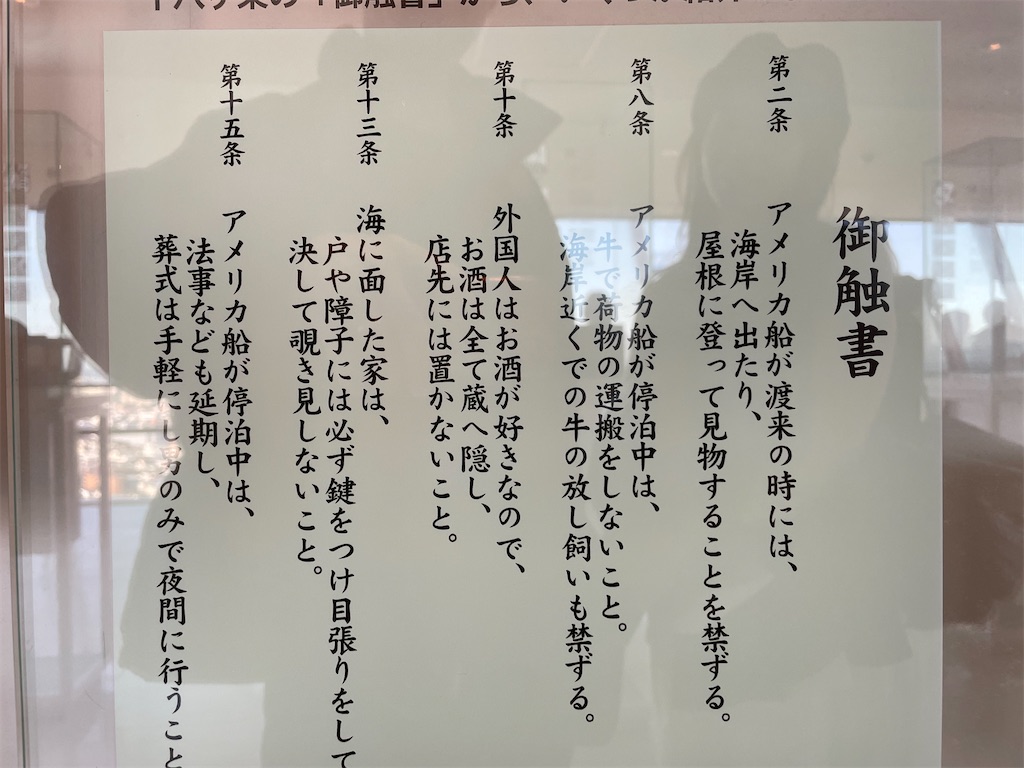 御触書
第二条
アメリカ船が渡来の時には、
海岸へ出たり、
屋根に登って見物することを禁ずる。
第八条
アメリカ船が停泊中は、
牛で荷物の運搬をしないこと。
海岸近くでの牛の放し飼いも禁ずる。
第十条
外国人はお酒が好きなので、
お酒は全て蔵へ隠し、
店先には置かないこと。
第十三条
海に面した家は、
戸や障子には必ず鍵をつけ目張りをして
決して覗き見しないこと。
第十五条
アメリカ船が停泊中は、
法事なども延期し、
葬式は手軽にし男のみで夜間に行うこと